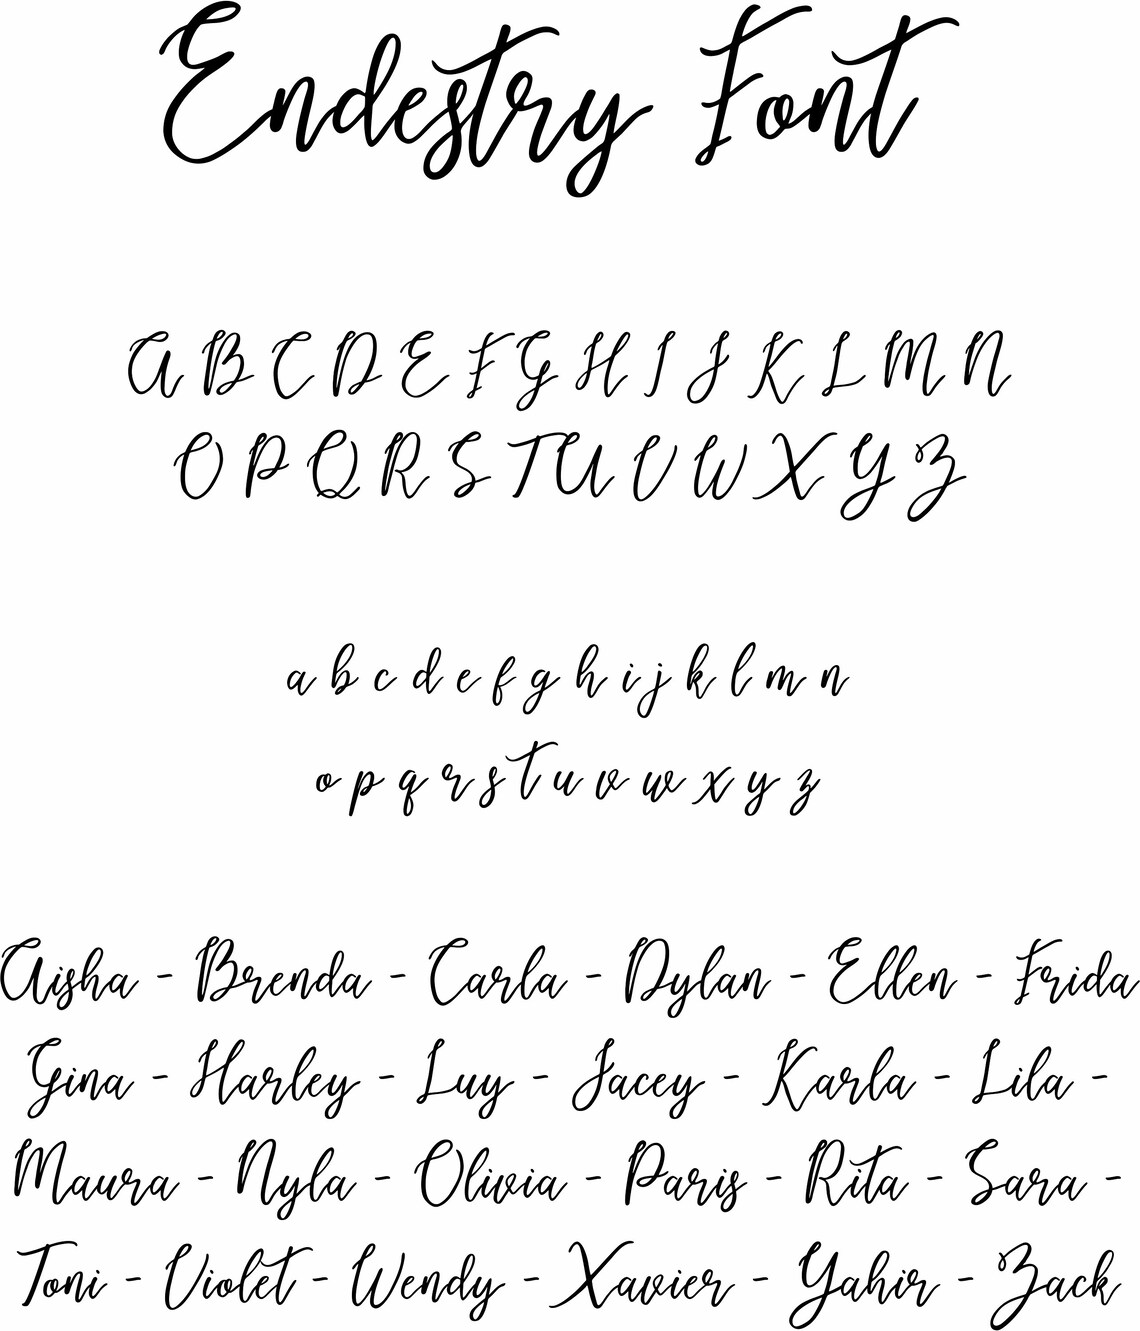 Endestry Font
A B C D E F G H I J K L M N
O P Q R S T U V W X Y Z
a b c d e f g h i j k l m n
o p q r s t u v w x y z
Aisha - Brenda - Carla - Dylan - Ellen - Frida
Gina - Harley - Luy - Jacey - Karla - Lila -
Maura - Nyla - Olivia - Paris - Rita - Sara -
Toni - Violet - Wendy - Xavier - Yahir - Zack